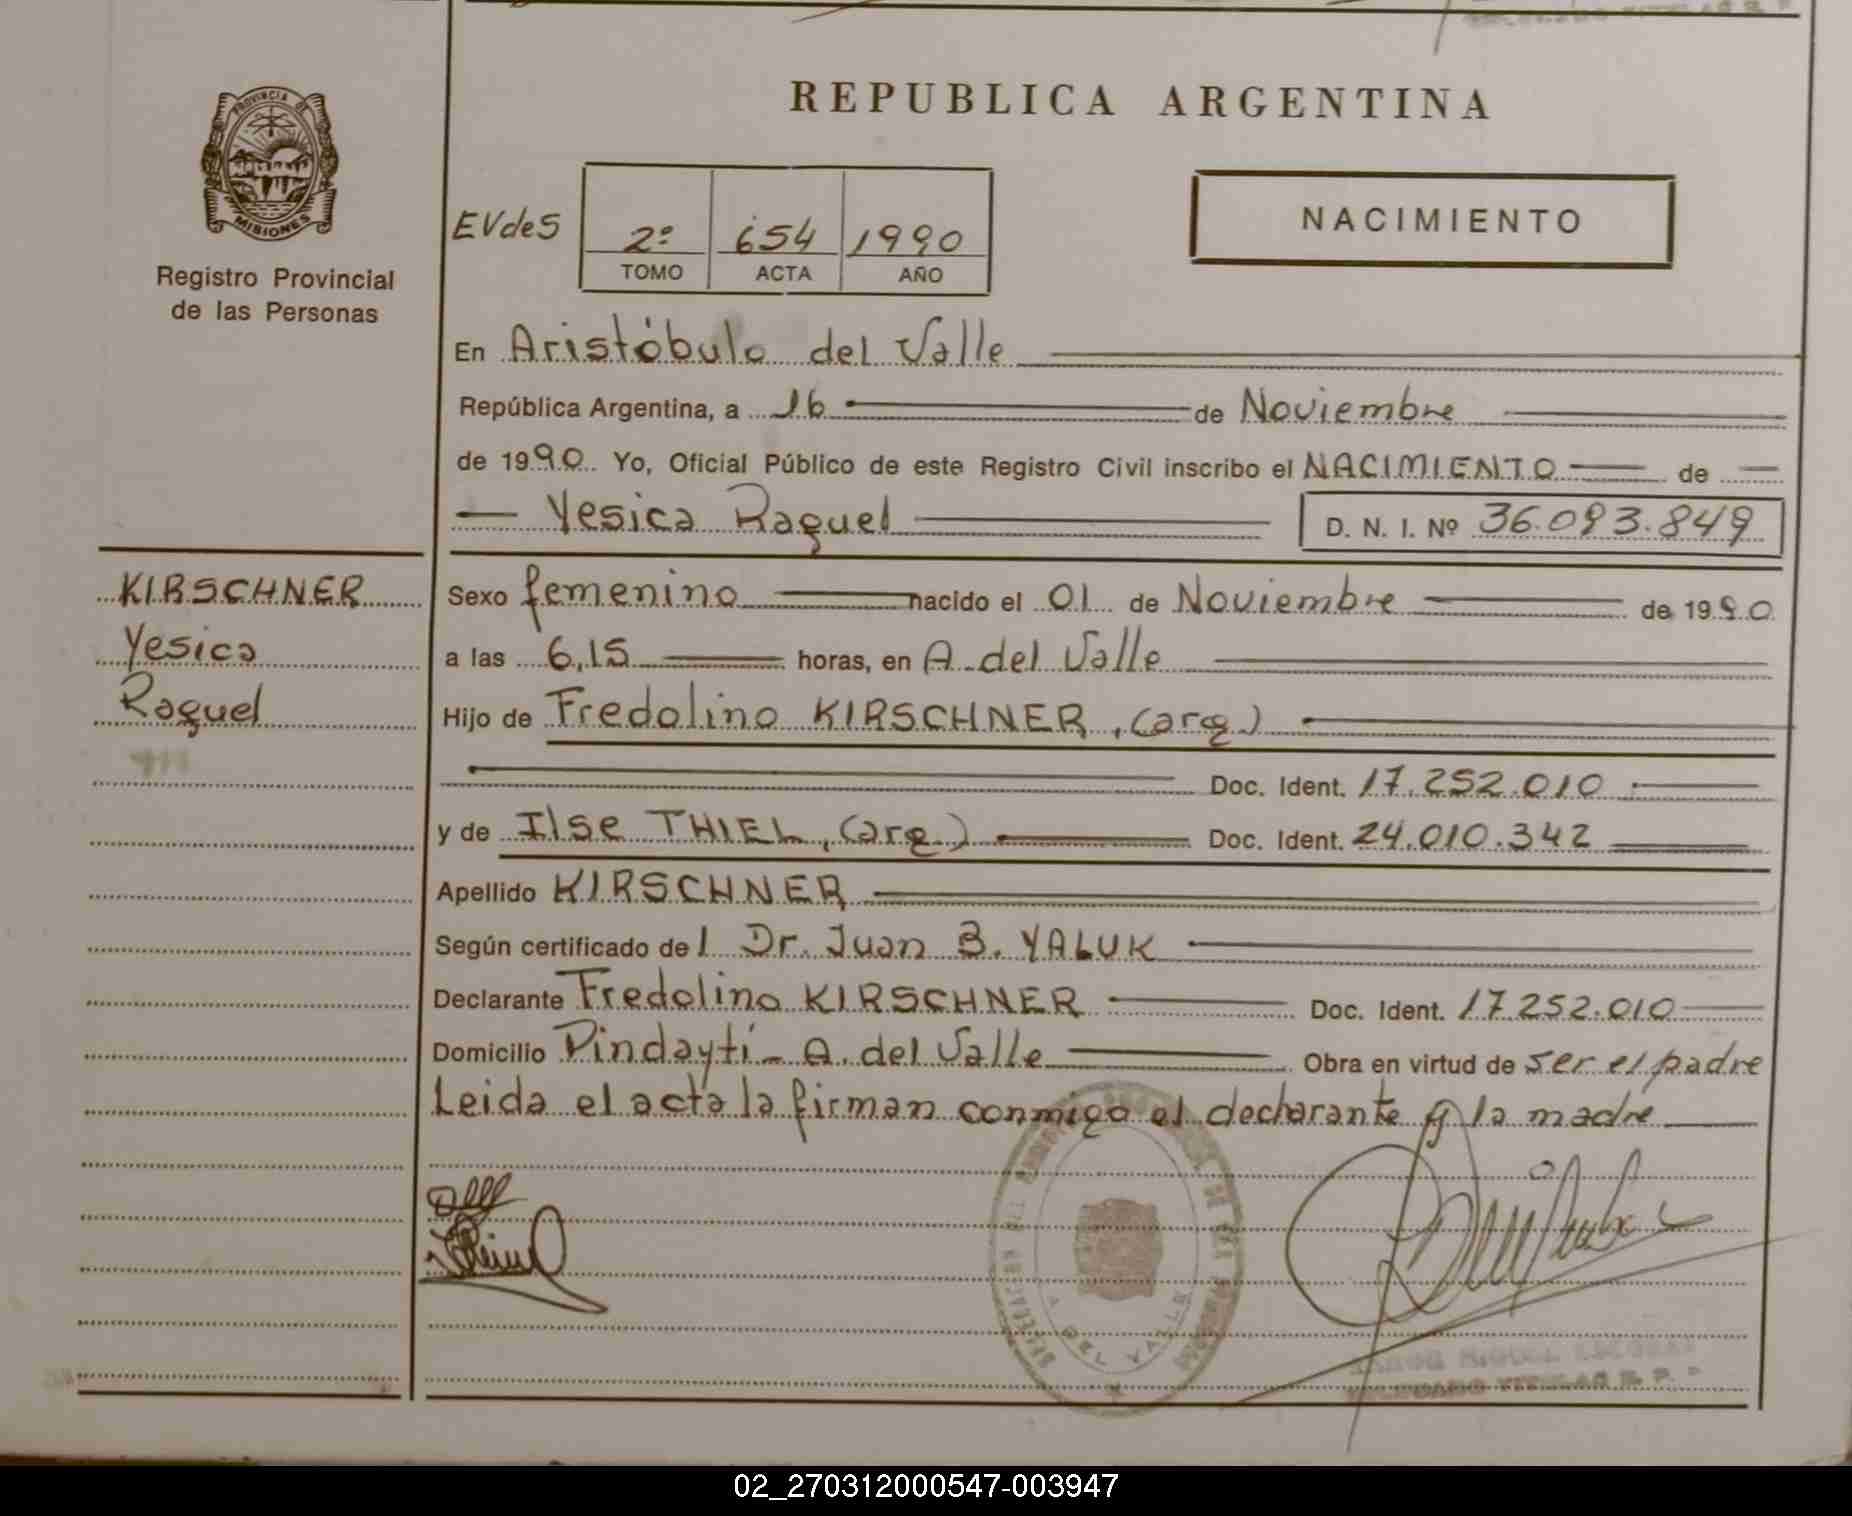 REPUBLICA ARGENTINA
PROVINCIA DE
MISIONES
Registro Provincial
de las Personas
EVdeS
2º 654 1990
TOMO ACTA AÑO
NACIMIENTO
En Aristóbulo del Valle
República Argentina, a 16 de Noviembre
de 1990. Yo, Oficial Público de este Registro Civil inscribo el NACIMIENTO de
Yesica Raquel D. N. I. Nº 36.093.849
KIRSCHNER
Yesica
Raquel
Sexo femenino nacido el 01 de Noviembre de 1990
a las 6,15 horas, en A. del Valle
Hijo de Fredolino KIRSCHNER, (arg)
Doc. Ident. 17.252.010
y de Ilse THIEL, (arg.) Doc. Ident. 24.010.342
Apellido KIRSCHNER
Según certificado del Dr. Juan B. YALUK
Declarante Fredolino KIRSCHNER Doc. Ident. 17252.010
Domicilio Pindaytí - A. del Valle Obra en virtud de ser el padre
Leida el acta la firman conmigo el declarante y la madre
DEL VALLE
MIGUEL ESCOBAR
DELEGADO TITULAR R. P.
02_270312000547-003947